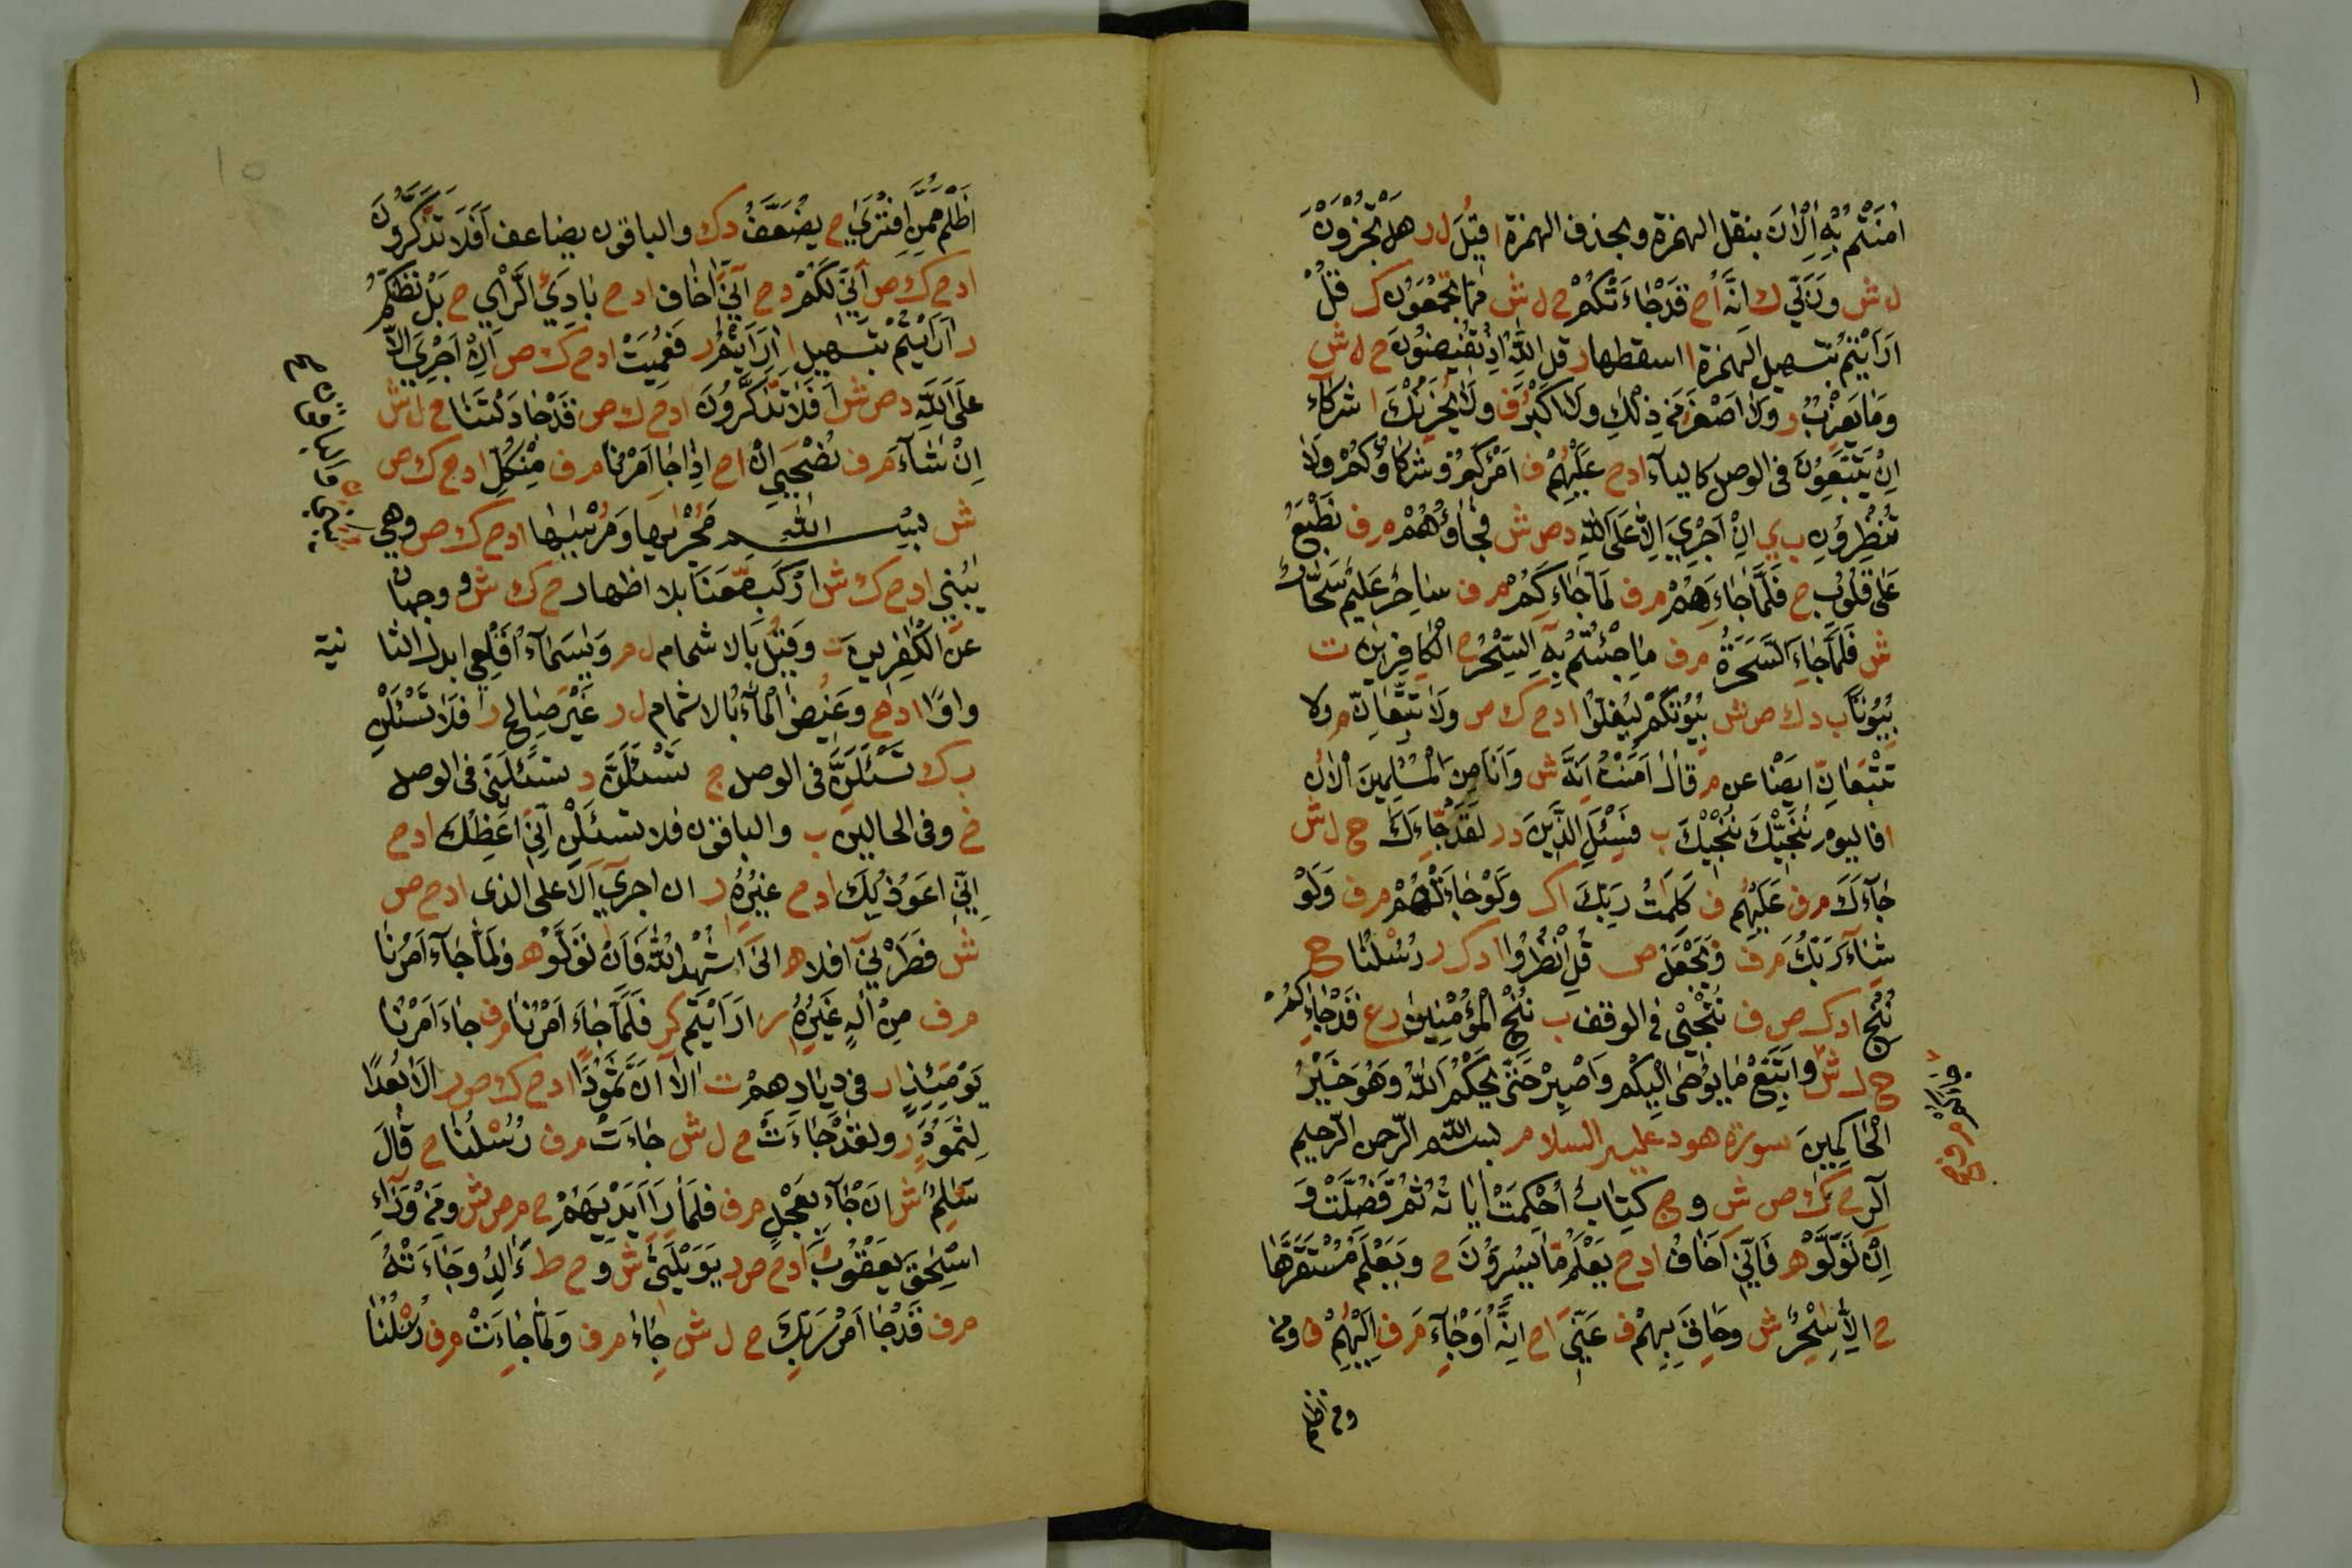 اٰمَنْتُمْ بِهِ اٰلْاٰنَ بنقل الهمزة وبحذف الهمزة ا قِيلَ ل ر هَلْ تُجْزَوْنَ
ل ش وَرَبِّي ك انَّ ا ح قَدْ جَاءَتْكُمْ ح ل ش مِمَّا تَجْمَعُونَ ك قُلْ
اَرَاَيْتُمْ بتسهيل الهمزة ا اسقطها ر قل اللّٰهُ اِذْ تُفِيضُونَ ح ل ش
وَمَا يَعْزِبُ ر وَلَا اَصْغَرُ مِنْ ذٰلِكَ وَلَا اَكْبَرُ ف وَلَا يُحْزِنْكَ ا شركاء
اِنْ يَتَّبِعُونَ فى الوصل كالياء ا د ح عَلَيْهُمْ ف اَمْرَكُمْ وَشُرَكَاؤُكُمْ وَلَا
تُنْظِرُونِ ب ي اِنْ اَجْرِيْ اِلَّا عَلَى اللّٰهِ د ص ش فَجَاؤُهُمْ م ف نَطْبَعُ
عَلٰى قُلُوْبِ ح فَلَمَّا جَاءَهُمْ م ف لَمَّا جَاءَكُمْ م ف سَاحِرٍ عَلِيمٍ سَحَّارٍ
ش فَلَمَّا جَاءَ السَّحَرَةُ م ف مَا جِئْتُمْ بِهِ السِّحْرُ ح الْكَافِرِينَ ت
بِيُوتًا ب د ك ص ش بِيُوتَكُمْ لِيُضِلُّوا ا د ح ك ص وَلَا تَتَّبِعَانِ م ولا
تَتْبَعَانِّ ايضا عن م قَالَ اٰمَنْتُ اِنَّهُ ش وَاَنَا مِنَ الْمُسْلِمِينَ الْاٰنَ
ا فاليوم نُنَجِّيكَ نُنْجِيكَ ب فَسْئَلِ الَّذِينَ د ر لَقَدْ جَاءَكَ ح ل ش
جَاءَكَ م ف عَلَيْهُم ف كَلِمَتُ رَبِّكَ ا ك وَلَوْ جَاءَتْهُمْ م ف وَلَوْ
شَاءَ رَبُّكَ م ف وَنَجْعَلُ ص قُلُ انْظُرُوا ا د ك ر رُسْلَنَا ح
نُنَجِّ ا د ك ص ف نُنْجِيْ فى الوقف ب نُنْجِ الْمُؤْمِنِينَ ر ع قَدْ جَاءَكُمْ
ح ل ش وَاتَّبِعْ مَا يُوحٰى اِلَيْكَ وَاصْبِرْ حَتّٰى يَحْكُمَ اللّٰهُ وَهُوَ خَيْرُ
الْحَاكِمِينَ سورة هود عليه السلام بسم اللّٰه الرّحمن الرّحيم
الر ح ك ص ش و ج كِتَابٌ اُحْكِمَتْ اٰيَاتُهُ ثُمَّ فُصِّلَتْ وَ
اِنْ تَوَلَّوْ ه فَاِنِّيَ اَخَافُ ا د ح يَعْلَمُ مَا يُسِرُّونَ ح وَيَعْلَمُ مُسْتَقَرَّهَا
ح اِلَّا سٰحِرٌ ش وَحَاقَ بِهِمْ ف عَنِّيَ ا ح اِنَّهُ اَوْ جَاءَ م ف اِلَيْهِمْ ف ومن
ومن اظلم
اَظْلَمُ مِمَّنِ افْتَرٰى ح يُضَعَّفُ د ك والباقون يضاعف اَفَلَا تَذَّكَّرُونَ
ا د ح ك ص اَنِّي لَكُمْ د ح اِنِّيَ اَخَاف ا د ح بَادِئَ الرَّاْيِ ح بَلْ نَظُنُّكُمْ
ر اَرَاَيْتُمْ بتسهيل ا اَرَيْتُمْ ر فَعَمِيَتْ ا د ح ك ص اِنْ اَجْرِيَ اِلَّا
عَلَى اللّٰهِ د ص ش اَفَلَا تَذَّكَّرُونَ ا د ح ك ص قَدْ جَادَلْتَنَا ح ل ش
اِنْ شَاءَ م ف نُصْحِيَ اِنْ ا ح اِذَا جَا اَمْرُنَا م ف مِنْ كُلِّ ا د ح ك ص
ش بِسْمِ اللّٰهِ مُجْرٰىهَا وَمُرْسٰىهَا ا د ح ك ص وهي
يٰبُنَيِّ ا د ح ك ش ارْكَبْ مَعَنَا بلا اظهار ح ك ش و وجهان
عن الكٰفِرِينَ ت وَقِيلَ بالاشمام ل ر وَيٰسَمَاءُ اَقْلِعِي ابدل الثا
نية
واوًا ا د ح وَغِيضَ الْمَاءُ بالاشمام ل ر غَيْرَ صَالِحٍ ر فَلَا تَسْئَلَنِّ
ب ك تَسْئَلَنِّي فى الوصل ج تَسْئَلَنَّ د تَسْئَلْنِي فى الوصل
ح وفى الحالين ب والباقون فلا تسئلن اِنِّيَ اَعِظُكَ ا د ح
اِنِّيَ اَعُوذُ بِكَ ا د ح غَيْرِهِ ر ان اجري اِلَّا على الذى ا د ح ص
ش فَطَرَنِيَ اَفَلَا ه اِنِّيَ اُشْهِدُ اللّٰهَ فَاِنْ تَوَلَّوْ ه وَلَمَّا جَاءَ اَمْرُنَا
م ف مِنْ اِلٰهٍ غَيْرِهِ ر اَرَاَيْتُمْ ك ر فَلَمَّا جَاءَ اَمْرُنَا م ف جَاءَ اَمْرُنَا
يَوْمَئِذٍ ا ر فى دِيَارِهِمْ ت اَلَا اِنَّ ثَمُودًا ا د ح ك ص ر اَلَا بُعْدًا
لِثَمُودٍ ر ولقد جَاءَتْ ح ل ش جَاءَتْ م ف رُسْلُنَا ح قَالَ
سِلْمٌ ش اَنْ جَاءَ بِعِجْلٍ م ف فَلَمَّا رَاَ اَيْدِيَهُمْ ح م ص ش وَمِنْ وَرَاءِ
اِسْحٰقَ يَعْقُوبُ ا د ح ص ر يٰوَيْلَتٰى ش و ح ط ءَاَلِدُ وَجَاءَتْهُ
م ف قَدْ جَا اَمْرُ رَبِّكَ ح ل ش جَاءَ م ف وَلَمَّا جَاءَتْ م ف رُسْلُنَا